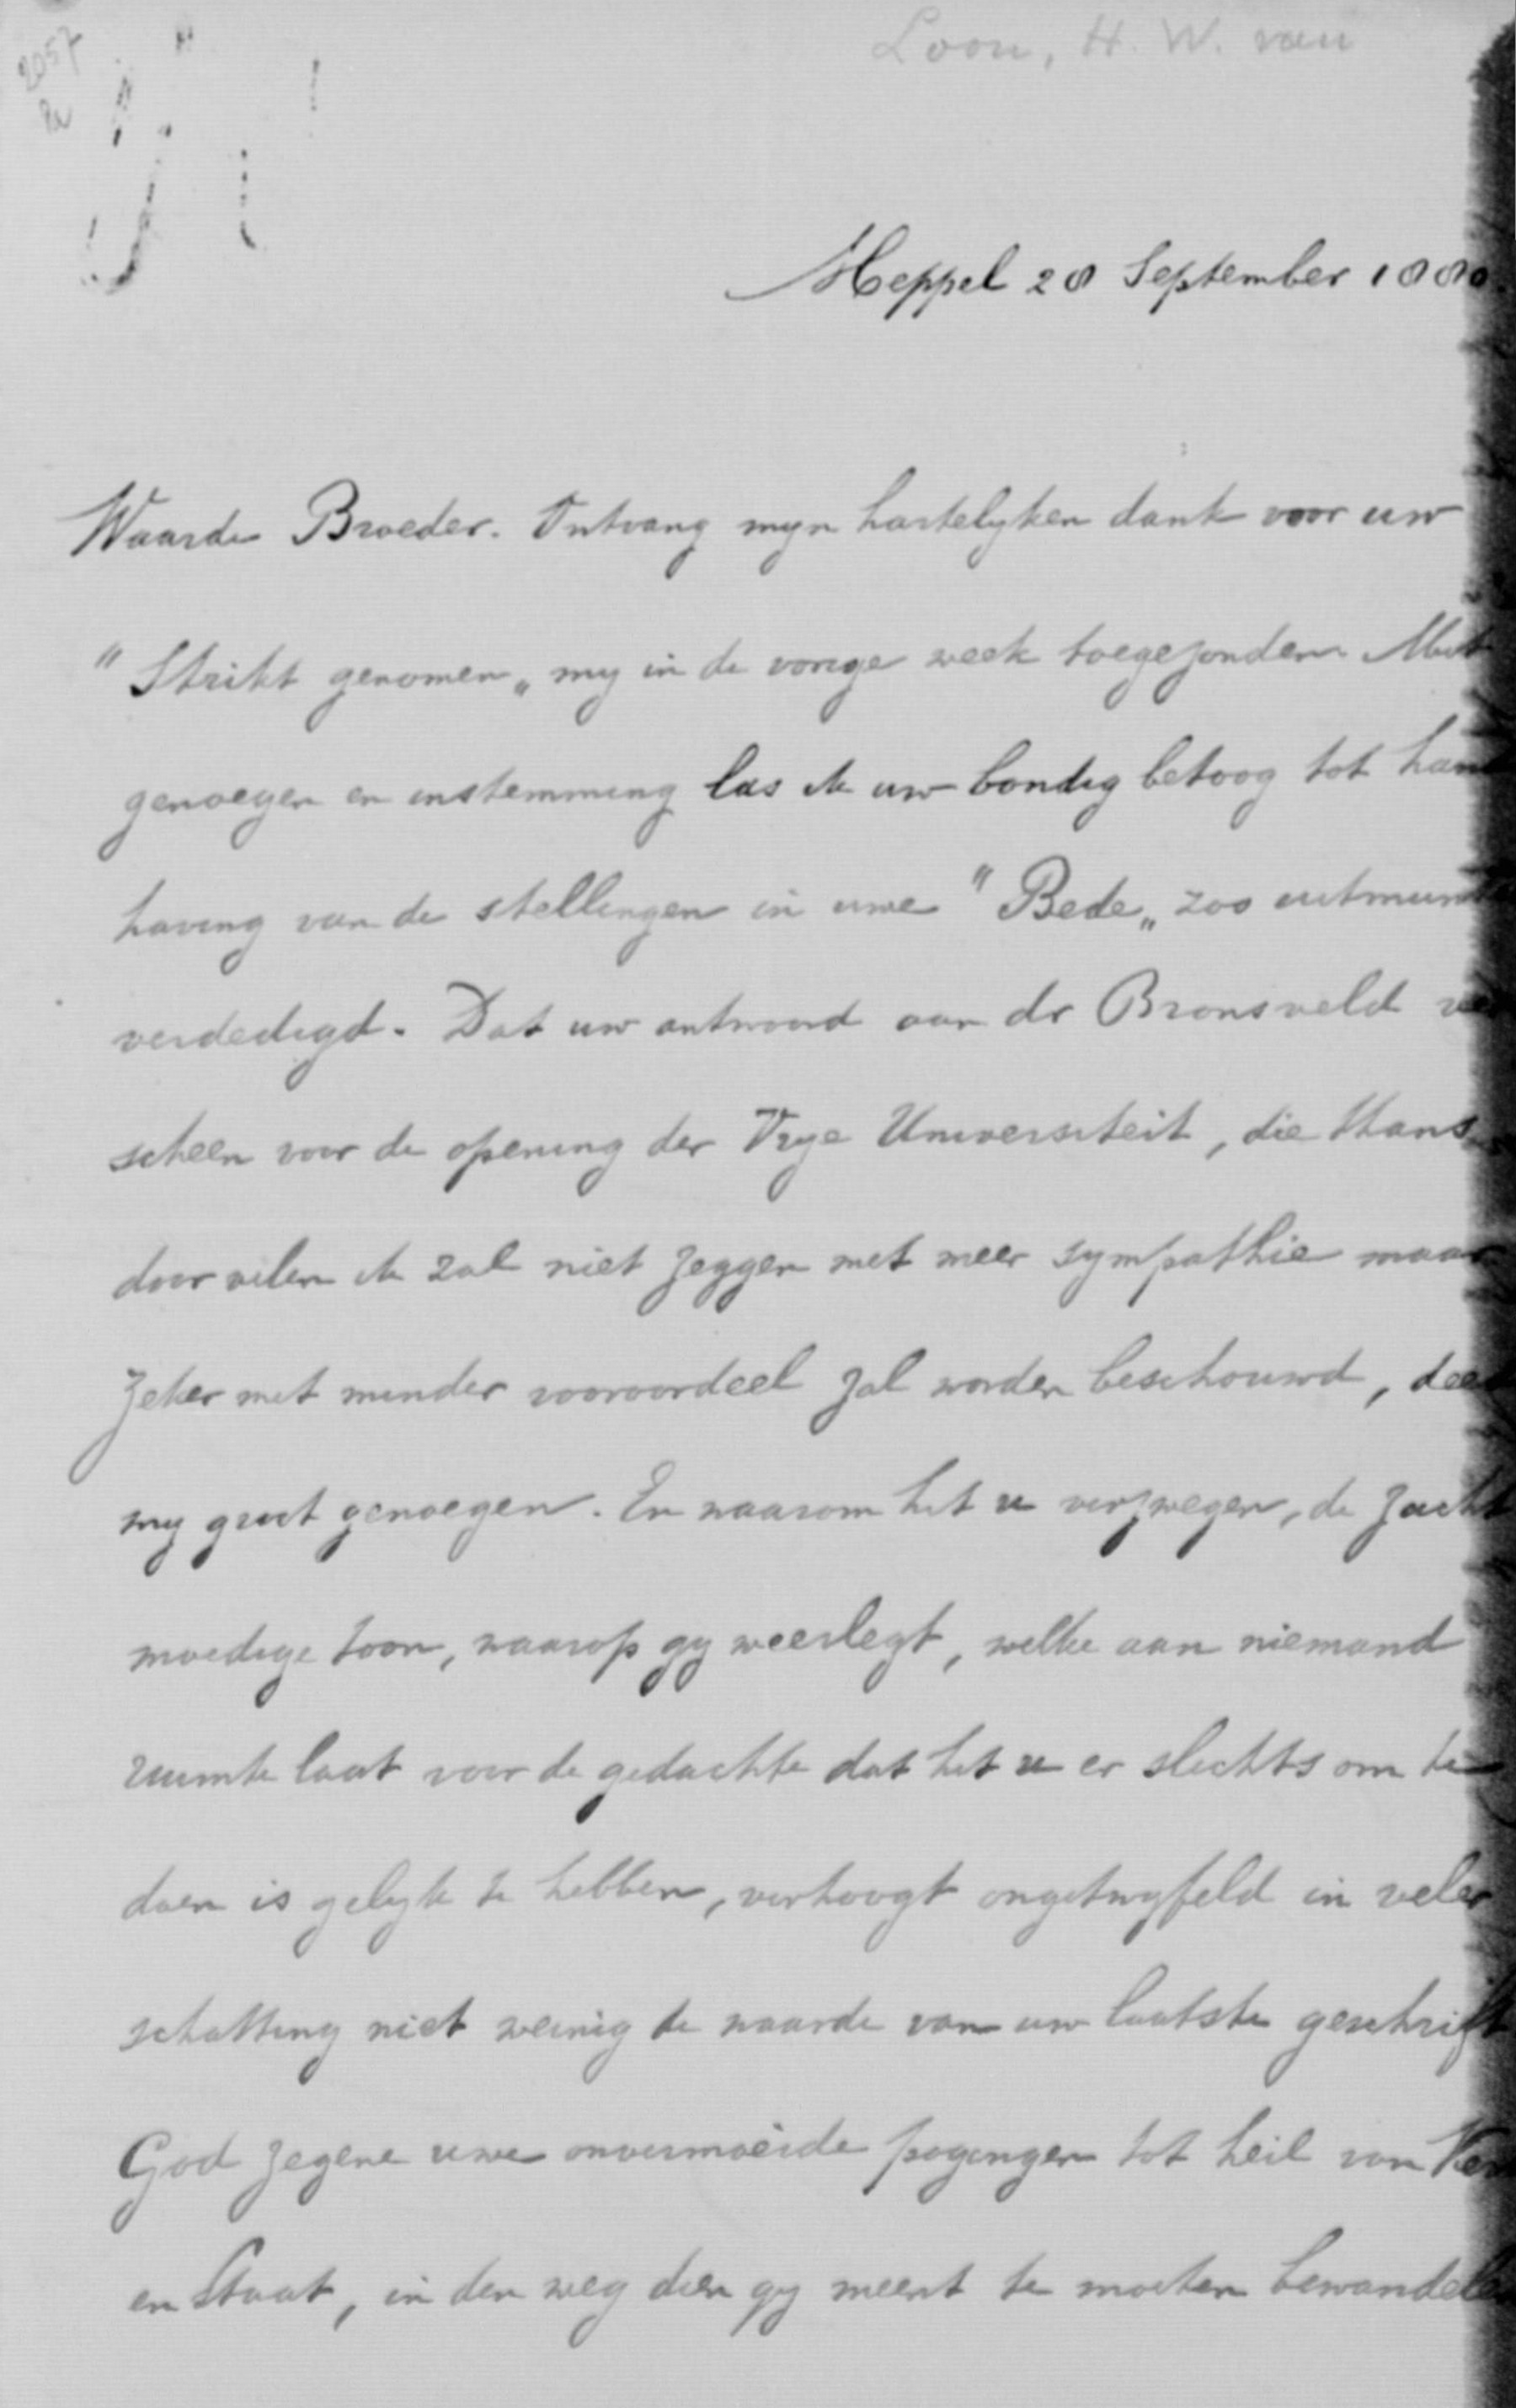 Loon, H. W. van
2057
Meppel 28 September 1880.
Waarde Broeder. Ontvang myn hartelyken dank voor uw
"Strikt genomen„ my in de vorige week toegezonden. Met
genoegen en instemming las ik uw bondig betoog tot hand
having van de stellingen in uwe "Bede„ zoo uitmunt
verdedigd. Dat uw antwoord aan dr Bronsveld ver
scheen voor de opening der Vrye Universiteit, die thans
door velen ik zal niet zeggen met meer sympathie maar
zeker met minder vooroordeel zal worden beschouwd, deed
my groot genoegen. En waarom het u verzwegen, de zacht
moedige toon, waarop gy weerlegt, welke aan niemand
ruimte laat voor de gedachte dat het u er slechts om te
doen is gelyk te hebben, verhoogt ongetwyfeld in veler
schatting niet weinig de waarde van uw laatste geschrift
God zegene uwe onvermoëide pogingen tot heil van Kerk
en Staat, in den weg dien gy meent te moeten bewandelen